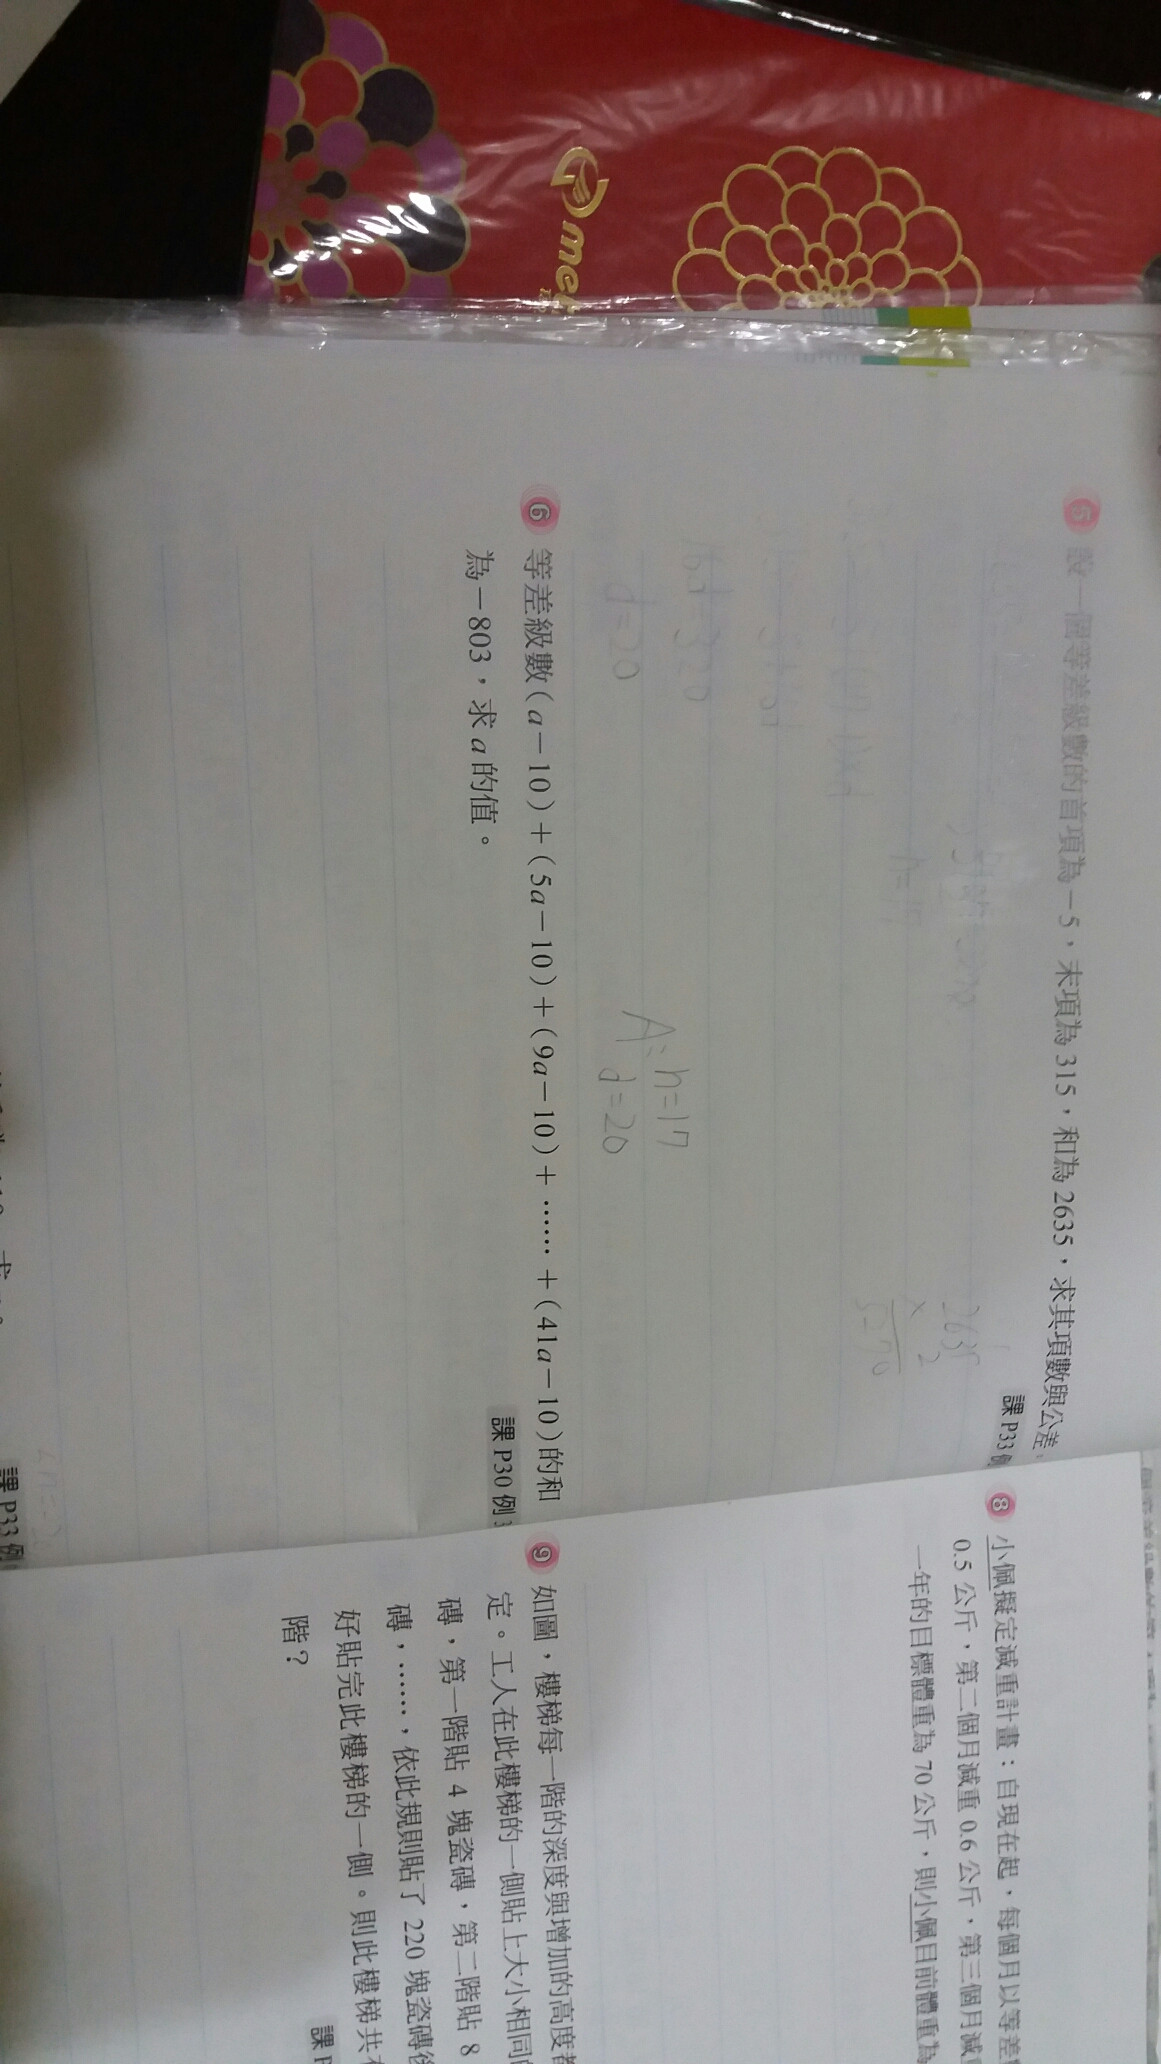 met
5 設一個等差級數的首項為－5，末項為315，和為2635，求其項數與公差。
課P33例
2635
× 2
5270
16d=320
d=20
A: n=17
d=20
6 等差級數(a－10)＋(5a－10)＋(9a－10)＋……＋(41a－10)的和
為－803，求a的值。
課P30例3
課P33例
8 小佩擬定減重計畫：自現在起，每個月以等差
0.5公斤，第二個月減重0.6公斤，第三個月減
一年的目標體重為70公斤，則小佩目前體重為
9 如圖，樓梯每一階的深度與增加的高度都
定。工人在此樓梯的一側貼上大小相同的
磚，第一階貼4塊瓷磚，第二階貼8
磚，……，依此規則貼了220塊瓷磚後
好貼完此樓梯的一側。則此樓梯共有
階？
課P